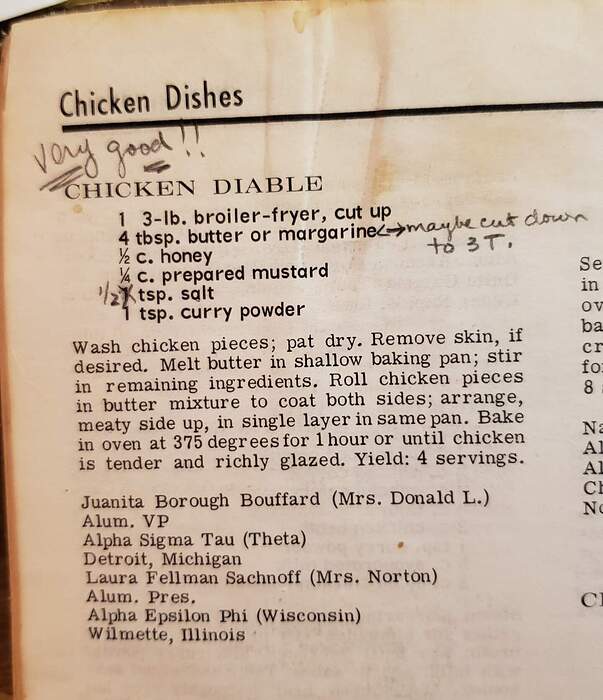 Chicken Dishes
very good!!
CHICKEN DIABLE
1 3-lb. broiler-fryer, cut up
4 tbsp. butter or margarine <-> maybe cut down
to 3 T.
½ c. honey
¼ c. prepared mustard
1/2 1 tsp. salt
1 tsp. curry powder
Wash chicken pieces; pat dry. Remove skin, if
desired. Melt butter in shallow baking pan; stir
in remaining ingredients. Roll chicken pieces
in butter mixture to coat both sides; arrange,
meaty side up, in single layer in same pan. Bake
in oven at 375 degrees for 1 hour or until chicken
is tender and richly glazed. Yield: 4 servings.
Juanita Borough Bouffard (Mrs. Donald L.)
Alum. VP
Alpha Sigma Tau (Theta)
Detroit, Michigan
Laura Fellman Sachnoff (Mrs. Norton)
Alum. Pres.
Alpha Epsilon Phi (Wisconsin)
Wilmette, Illinois
Se
in
ov
ba
cr
fo
8
Na
Al
Al
Ch
No